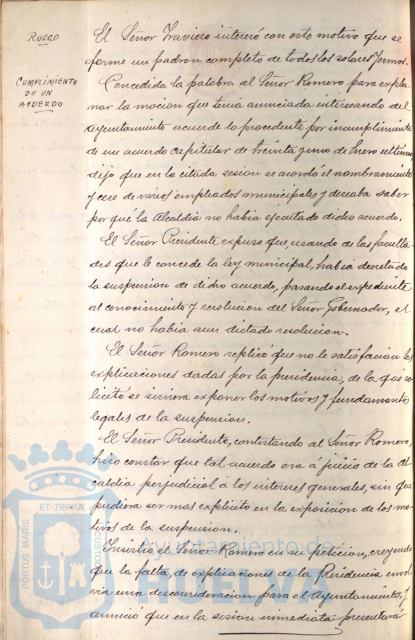 RUEGO
El Señor Traviero interesó con este motivo que se
forme un padron completo de todos los solares yermos.
CUMPLIMIENTO
DE UN
ACUERDO
Concedida la palabra al Señor Romero para expla-
nar la mocion que tenia anunciada interesando del
Ayuntamiento acuerde lo procedente por incumplimiento
de un acuerdo capitular de treinta y uno de Enero ultimo
dijo que en la citada sesion se acordó el nombramiento
y cese de varios empleados municipales y deseaba saber
por qué la Alcaldia no habia ejecutado dicho acuerdo.
El Señor Presidente expuso que, usando de las faculta-
des que le concede la ley municipal, habia decretado
la suspension de dicho acuerdo, pasando el expediente
al conocimiento y resolucion del Señor Gobernador, el
cual no habia aun dictado resolucion.
El Señor Romero replicó que no le satisfacian las
explicaciones dadas por la presidencia, de la que so-
licitó se sirviera exponer los motivos y fundamentos
legales de la suspension.
El Señor Presidente, contestando al Señor Romero,
hizo constar que tal acuerdo era á juicio de la Al-
caldia perjudicial á los intereses generales, sin que
pudiera ser mas explicito en la exposicion de los mo-
tivos de la suspension.
Insistió el Señor Romero en su peticion, creyendo
que la falta de explicaciones de la Presidencia envol-
via una desconsideracion para el Ayuntamiento, y
anunció que en la sesion inmediata presentará
PORTUS MARIS
ET TERRAE
CUSTODIA
Ayuntamiento de